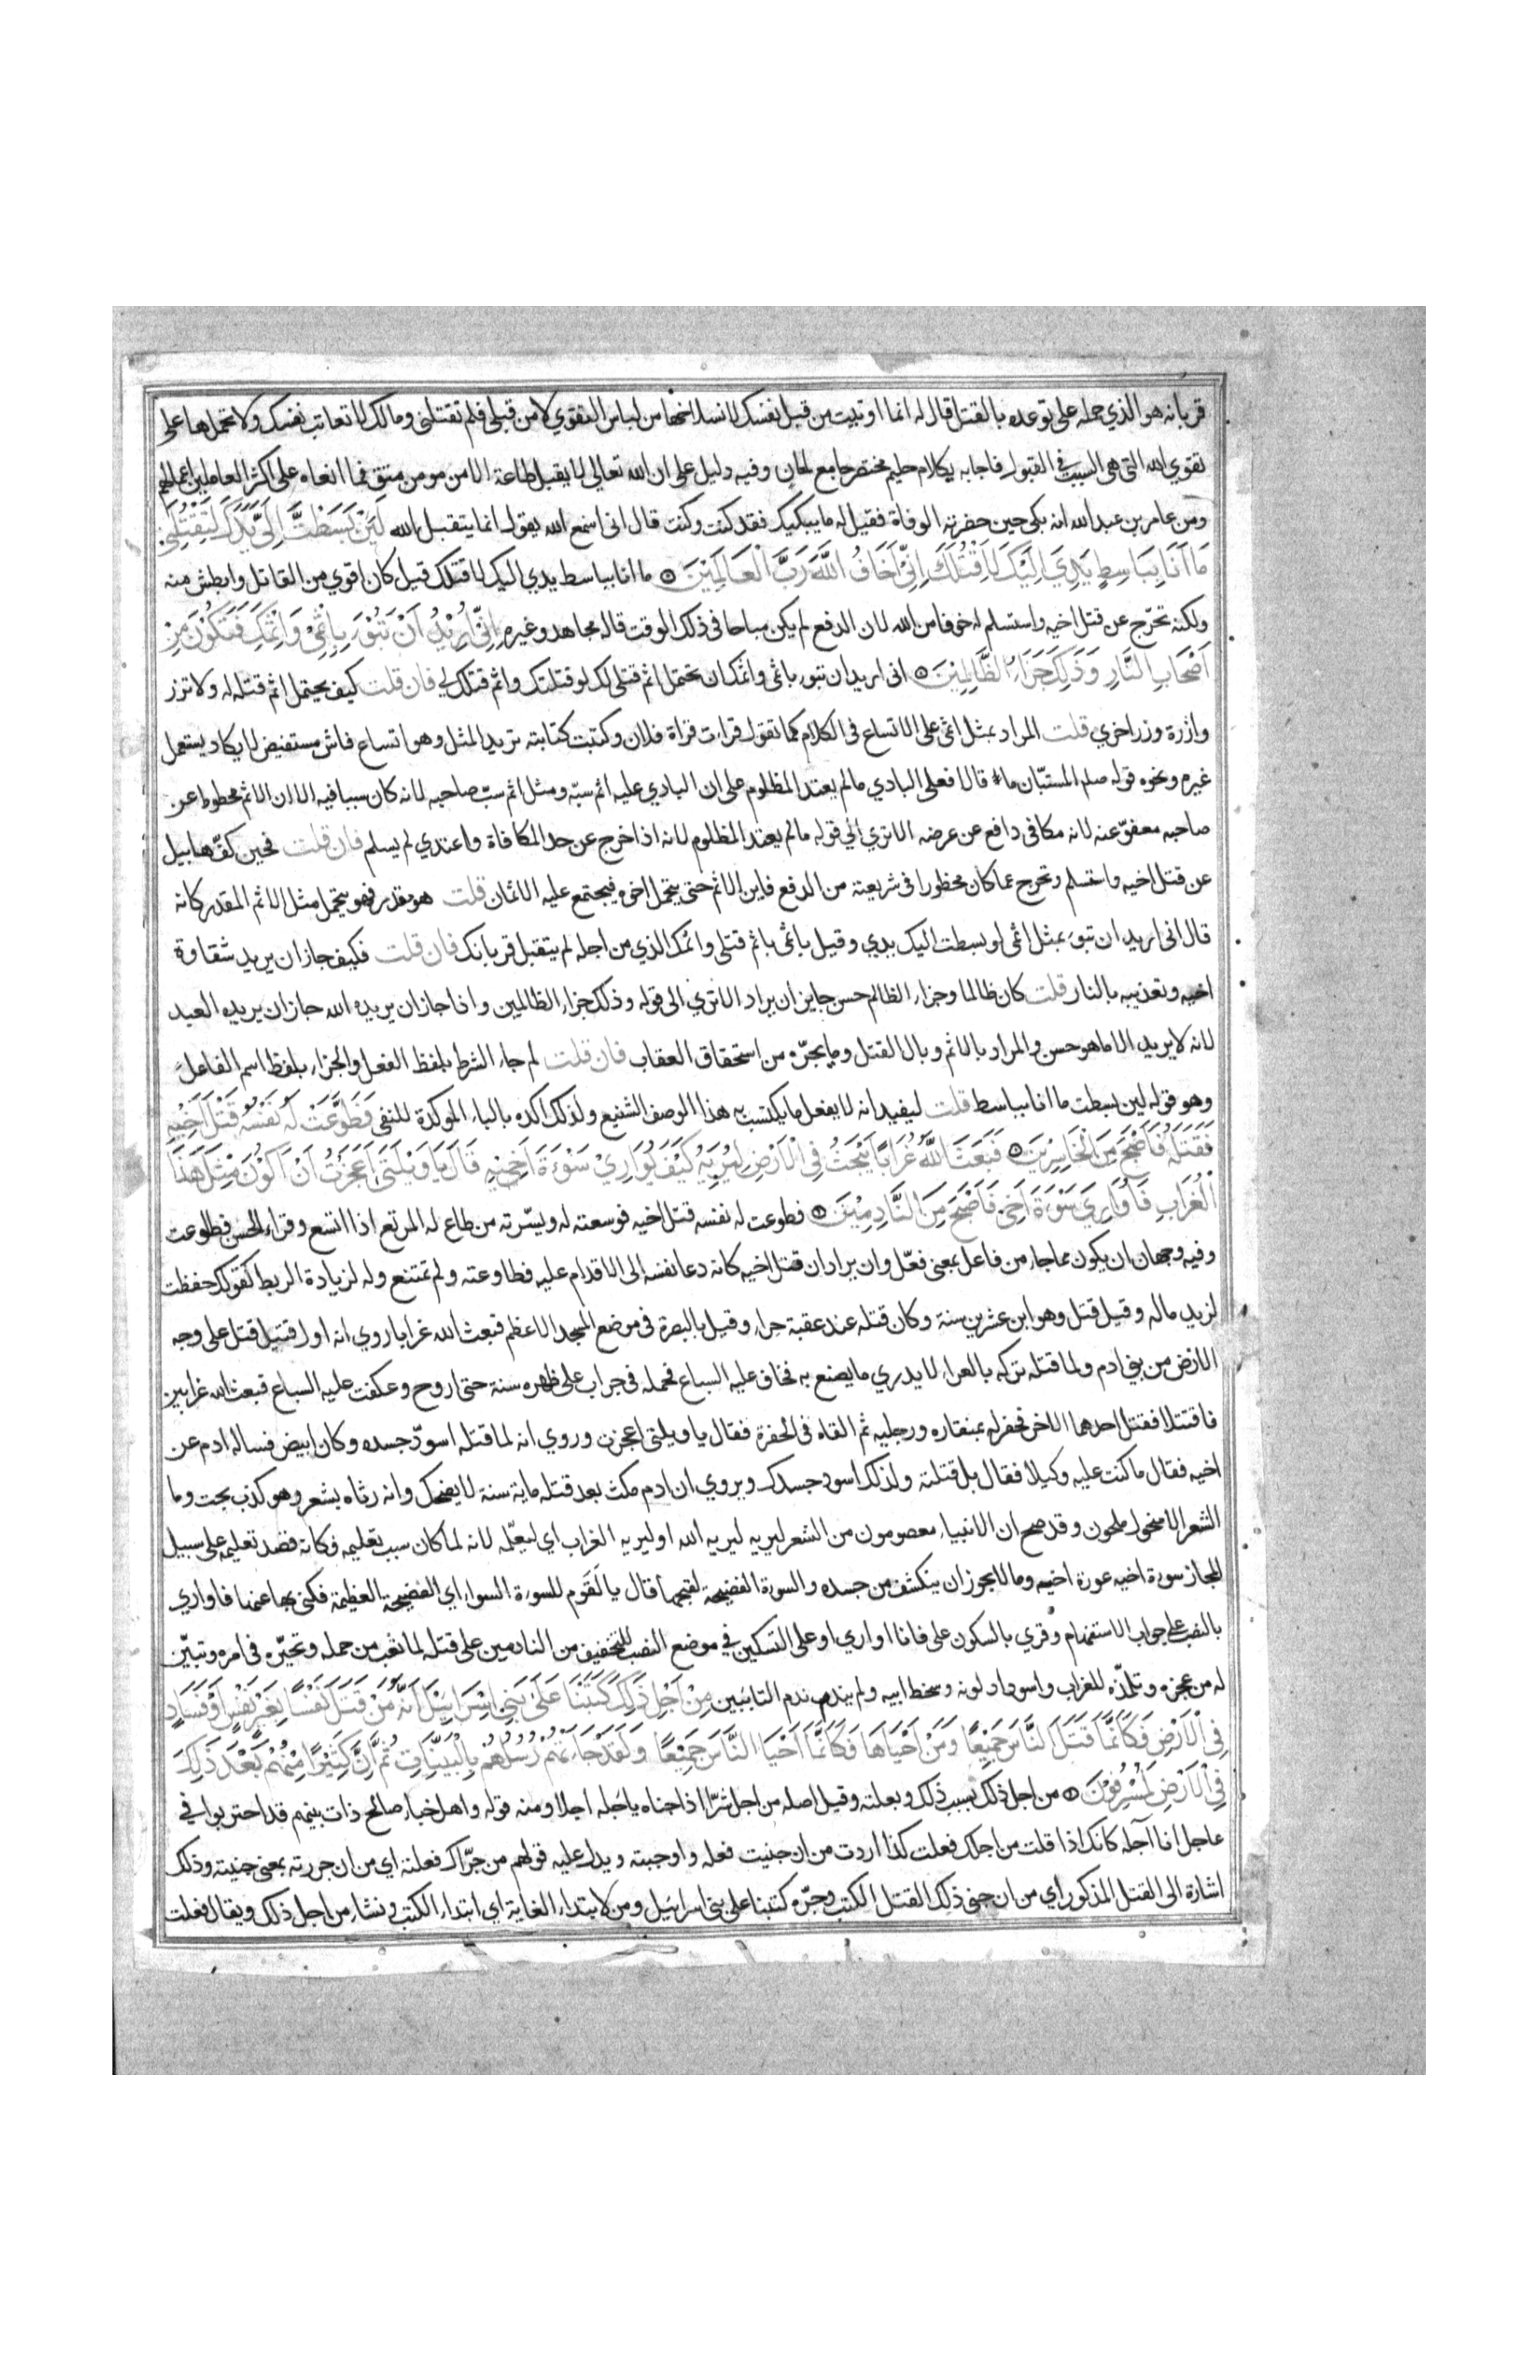 قربانه هو الذي حمله على توعده بالقتل قال له انما اوتيت من قبل نفسك لانسلاخها من لباس التقوي لا من قبلي فلم تقتلني ومالك لا تعاتب نفسك ولا تحملها على
تقوي الله التي هي السبب في القبول فاجابه بكلام حليم مختصر جامع لمعان وفيه دليل على ان الله تعالى لا يقبل طاعة الا من مومن متق فما انعاه على اكثر العاملين اعمالهم
وعن عامر بن عبد الله انه بكي حين حضرته الوفاة فقيل له ما يبكيك فقد كنت وكنت قال اني اسمع الله يقول انما يتقبل الله لَئِنْ بَسَطْتَّ اِلَيَّ يَدَكَ لِتَقْتُلَنِي
مَا اَنَا بِبَاسِطٍ يَدِيَ اِلَيْكَ لِاَقْتُلَكَ اِنِّي اَخَافُ اللَّهَ رَبَّ الْعَالَمِينَ ما انا بباسط يدي اليك لاقتلك قيل كان اقوي من القاتل وابطش منه
ولكنه تحرّج عن قتل اخيه واستسلم له خوفا من الله لان الدفع لم يكن مباحا في ذلك الوقت قاله مجاهد وغيره اِنِّي اُرِيْدُ اَنْ تَبُوْءَ بِاِثْمِيْ وَاِثْمِكَ فَتَكُوْنَ مِنْ
اَصْحَابِ النَّارِ وَذَلِكَ جَزَاءُ الظَّالِمِيْنَ اني اريد ان تبوء باثمي واثمك ان تحتمل اثم قتلي لك لو قتلتك واثم قتلك لي فان قلت كيف يحتمل اثم قتله له ولا تزر
وازرة وزر اخري قلت المراد بمثل اثمي على الاتساع في الكلام كما تقول قراءت قراة فلان وكتبت كتابته تريد المثل وهو اتساع فاش مستفيض لا يكاد يستعمل
غيره ونحوه قوله صلم المستبّان ما قالا فعلى البادي ما لم يعتد المظلوم على ان البادي عليه اثم سبّه ومثل اثم سبّ صاحبه لانه كان سببا فيه الا ان الاثم محطوط عن
صاحبه معفوّ عنه لانه مكافي دافع عن عرضه الا تري الي قوله ما لم يعتد المظلوم لانه اذا خرج عن حد المكافاة واعتدي لم يسلم فان قلت فحين كفّ هابيل
عن قتل اخيه واستسلم وتحرج عما كان محظورا في شريعته من الدفع فاين الاثم حتى يتحمل اخوه فيجتمع عليه الاثمان قلت هو مقدر فهو يتحمل مثل الاثم المقدر كانه
قال اني اريد ان تبوء بمثل اثمي لو بسطت اليك يدي وقيل باثمي باثم قتلي واثمك الذي من اجله لم يتقبل قربانك فان قلت فكيف جاز ان يريد شقاوة
اخيه وتعذيبه بالنار قلت كان ظالما وجزاء الظالم حسن جايز ان يراد الا تري الى قوله وذلك جزاء الظالمين واذا جاز ان يريده الله جاز ان يريده العبد
لانه لا يريد الا ما هو حسن والمراد بالاثم وبال القتل وما يجرّه من استحقاق العقاب فان قلت لم جاء الشرط بلفظ الفعل والجزاء بلفظ اسم الفاعل
وهو قوله لين بسطت ما انا بباسط قلت ليفيد انه لا يفعل ما يكتسب به هذا الوصف الشنيع ولذلك اكده بالباء الموكدة للنفي فَطَوَّعَتْ لَهُ نَفْسُهُ قَتْلَ اَخِيْهِ
فَقَتَلَهُ فَاَصْبَحَ مِنَ الْخَاسِرِيْنَ فَبَعَثَ اللَّهُ غُرَابًا يَبْحَثُ فِي الْاَرْضِ لِيُرِيَهُ كَيْفَ يُوَارِيْ سَوْءَةَ اَخِيْهِ قَالَ يَا وَيْلَتَي اَعَجَزْتُ اَنْ اَكُوْنَ مِثْلَ هَذَا
الْغُرَابِ فَاُوَارِيَ سَوْءَةَ اَخِي فَاَصْبَحَ مِنَ النَّادِمِيْنَ فطوعت له نفسه قتل اخيه فوسعته له ويسّرته من طاع له المرتع اذا اتسع وقراء الحسن فطاوعت
وفيه وجهان ان يكون مما جاء من فاعل بمعني فعّل وان يراد ان قتل اخيه كانه دعا نفسه الى الاقدام عليه فطاوعته ولم تمتنع وله لزيادة الربط كقولك حفظت
لزيد ماله وقيل قتل وهو ابن عشرين سنة وكان قتله عند عقبة حراء وقيل بالبصرة في موضع المسجد الاعظم فبعث الله غرابا روي انه اول قتيل قتل على وجه
الارض من بني ادم ولما قتله تركه بالعراء لا يدري ما يصنع به فخاف عليه السباع فحمله في جراب على ظهره سنة حتى اروح وعكفت عليه السباع فبعث الله غرابين
فاقتتلا فقتل احدهما الاخر فحفر له بمنقاره ورجليه ثم القاه في الحفرة فقال يا ويلتي اعجزت وروي انه لما قتله اسودّ جسده وكان ابيض فساله ادم عن
اخيه فقال ما كنت عليه وكيلا فقال بل قتلته ولذلك اسود جسدك ويروي ان ادم مكث بعد قتله ماية سنة لا يضحك وانه رثاه بشعر وهو كذب بحت وما
الشعر الا منحول ملحون وقد صح ان الانبياء معصومون من الشعر ليريه ليريه الله او ليريه الغراب اي ليعلّمه لانه لما كان سبب تعليمه فكانه قصد تعليمه على سبيل
المجاز سوءة اخيه عورة اخيه وما لا يجوز ان ينكشف من جسده والسوءة الفضيحة لقبحها قال يا لَقوم للسوءة السواء اي الفضيحة العظيمة فكني بها عنها فاواري
بالنصب على جواب الاستفهام وقري بالسكون على فانا اواري او على التسكين في موضع النصب للتخفيف من النادمين على قتله لما تعب من حمله وتحيّره في امره وتبيّن
له من عجزه وتلمّذه للغراب واسوداد لونه وسخط ابيه ولم يندم ندم التائبين مِنْ اَجْلِ ذَلِكَ كَتَبْنَا عَلَى بَنِي اِسْرَائِيلَ اَنَّهُ مَنْ قَتَلَ نَفْسًا بِغَيْرِ نَفْسٍ اَوْ فَسَادٍ
فِي الْاَرْضِ فَكَاَنَّمَا قَتَلَ النَّاسَ جَمِيْعًا وَمَنْ اَحْيَاهَا فَكَاَنَّمَا اَحْيَا النَّاسَ جَمِيْعًا وَلَقَدْ جَاءَتْهُمْ رُسُلُهُمْ بِالْبَيِّنَاتِ ثُمَّ اِنَّ كَثِيْرًا مِنْهُمْ بَعْدَ ذَلِكَ
فِي الْاَرْضِ لَمُسْرِفُوْنَ من اجل ذلك بسبب ذلك وبعلته وقيل اصله من اجل شرّا اذا جناه ياجُله اجلا ومنه قوله واهل خباء صالح ذات بينهم قد احتربوا في
عاجل انا آجله كانك اذا قلت من اجلك فعلت كذا اردت من ان جنيت فعله واوجبته ويدل عليه قولهم من جرّاك فعلته اي من ان جررته بمعني جنيته وذلك
اشارة الى القتل المذكور اي من ان جني ذلك القتل الكتب وجرّه كتبنا على بني اسرائيل ومن لابتداء الغاية اي ابتداء الكتب ونشاء من اجل ذلك ويقال فعلت